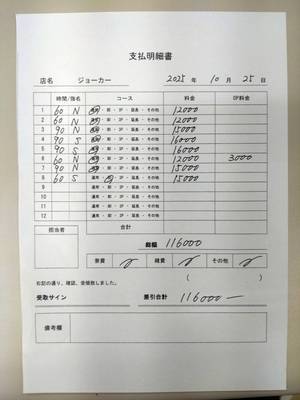 支払明細書
店名 ジョーカー 2025 年 10 月 25 日
時間/指名 コース 料金 OP料金
1 60 N 通常・即・3P・延長・その他 12000
2 60 N 通常・即・3P・延長・その他 12000
3 90 N 通常・即・3P・延長・その他 15000
4 90 S 通常・即・3P・延長・その他 16000
5 90 S 通常・即・3P・延長・その他 16000
6 60 N 通常・即・3P・延長・その他 12000 3000
7 90 N 通常・即・3P・延長・その他 15000
8 60 S 通常・即・3P・延長・その他 15000
9 通常・即・3P・延長・その他
10 通常・即・3P・延長・その他
11 通常・即・3P・延長・その他
12 通常・即・3P・延長・その他
担当者 合計
総額 116000
寮費 雑費 その他
( )
右記の通り、確認、受領致しました。
受取サイン 差引合計 116000-
備考欄